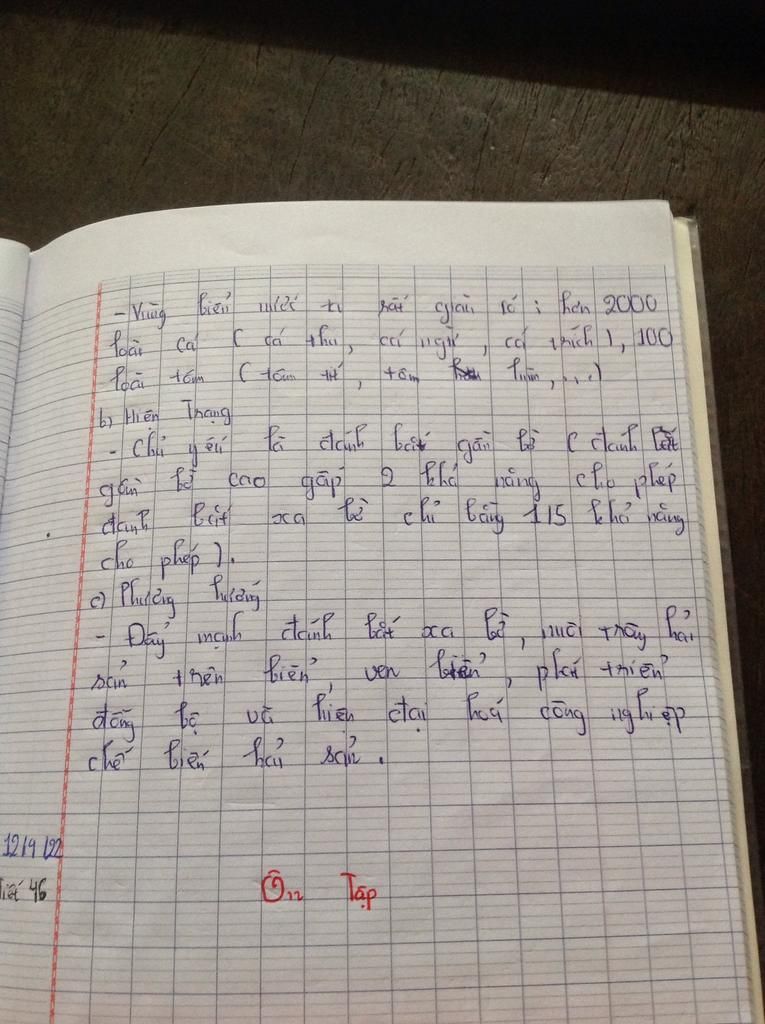 - Vùng biển nước ta rất giàu có : hơn 2000
loài cá ( cá thu, cá ngừ, cá trích ), 100
loài tôm ( tôm hùm, ...)
b) Hiện Trạng
- Chủ yếu là đánh bắt gần bờ ( đánh bắt
gần bờ cao gấp 2 khả năng cho phép
đánh bắt xa bờ chỉ bằng 1/5 khả năng
cho phép ).
c) Phương hướng
- Đẩy mạnh đánh bắt xa bờ, nuôi trồng hải
sản trên biển, ven biển, phát triển
đồng bộ và hiện đại hoá công nghiệp
chế biến hải sản.
12/4/22
Tiết 46 Ôn Tập